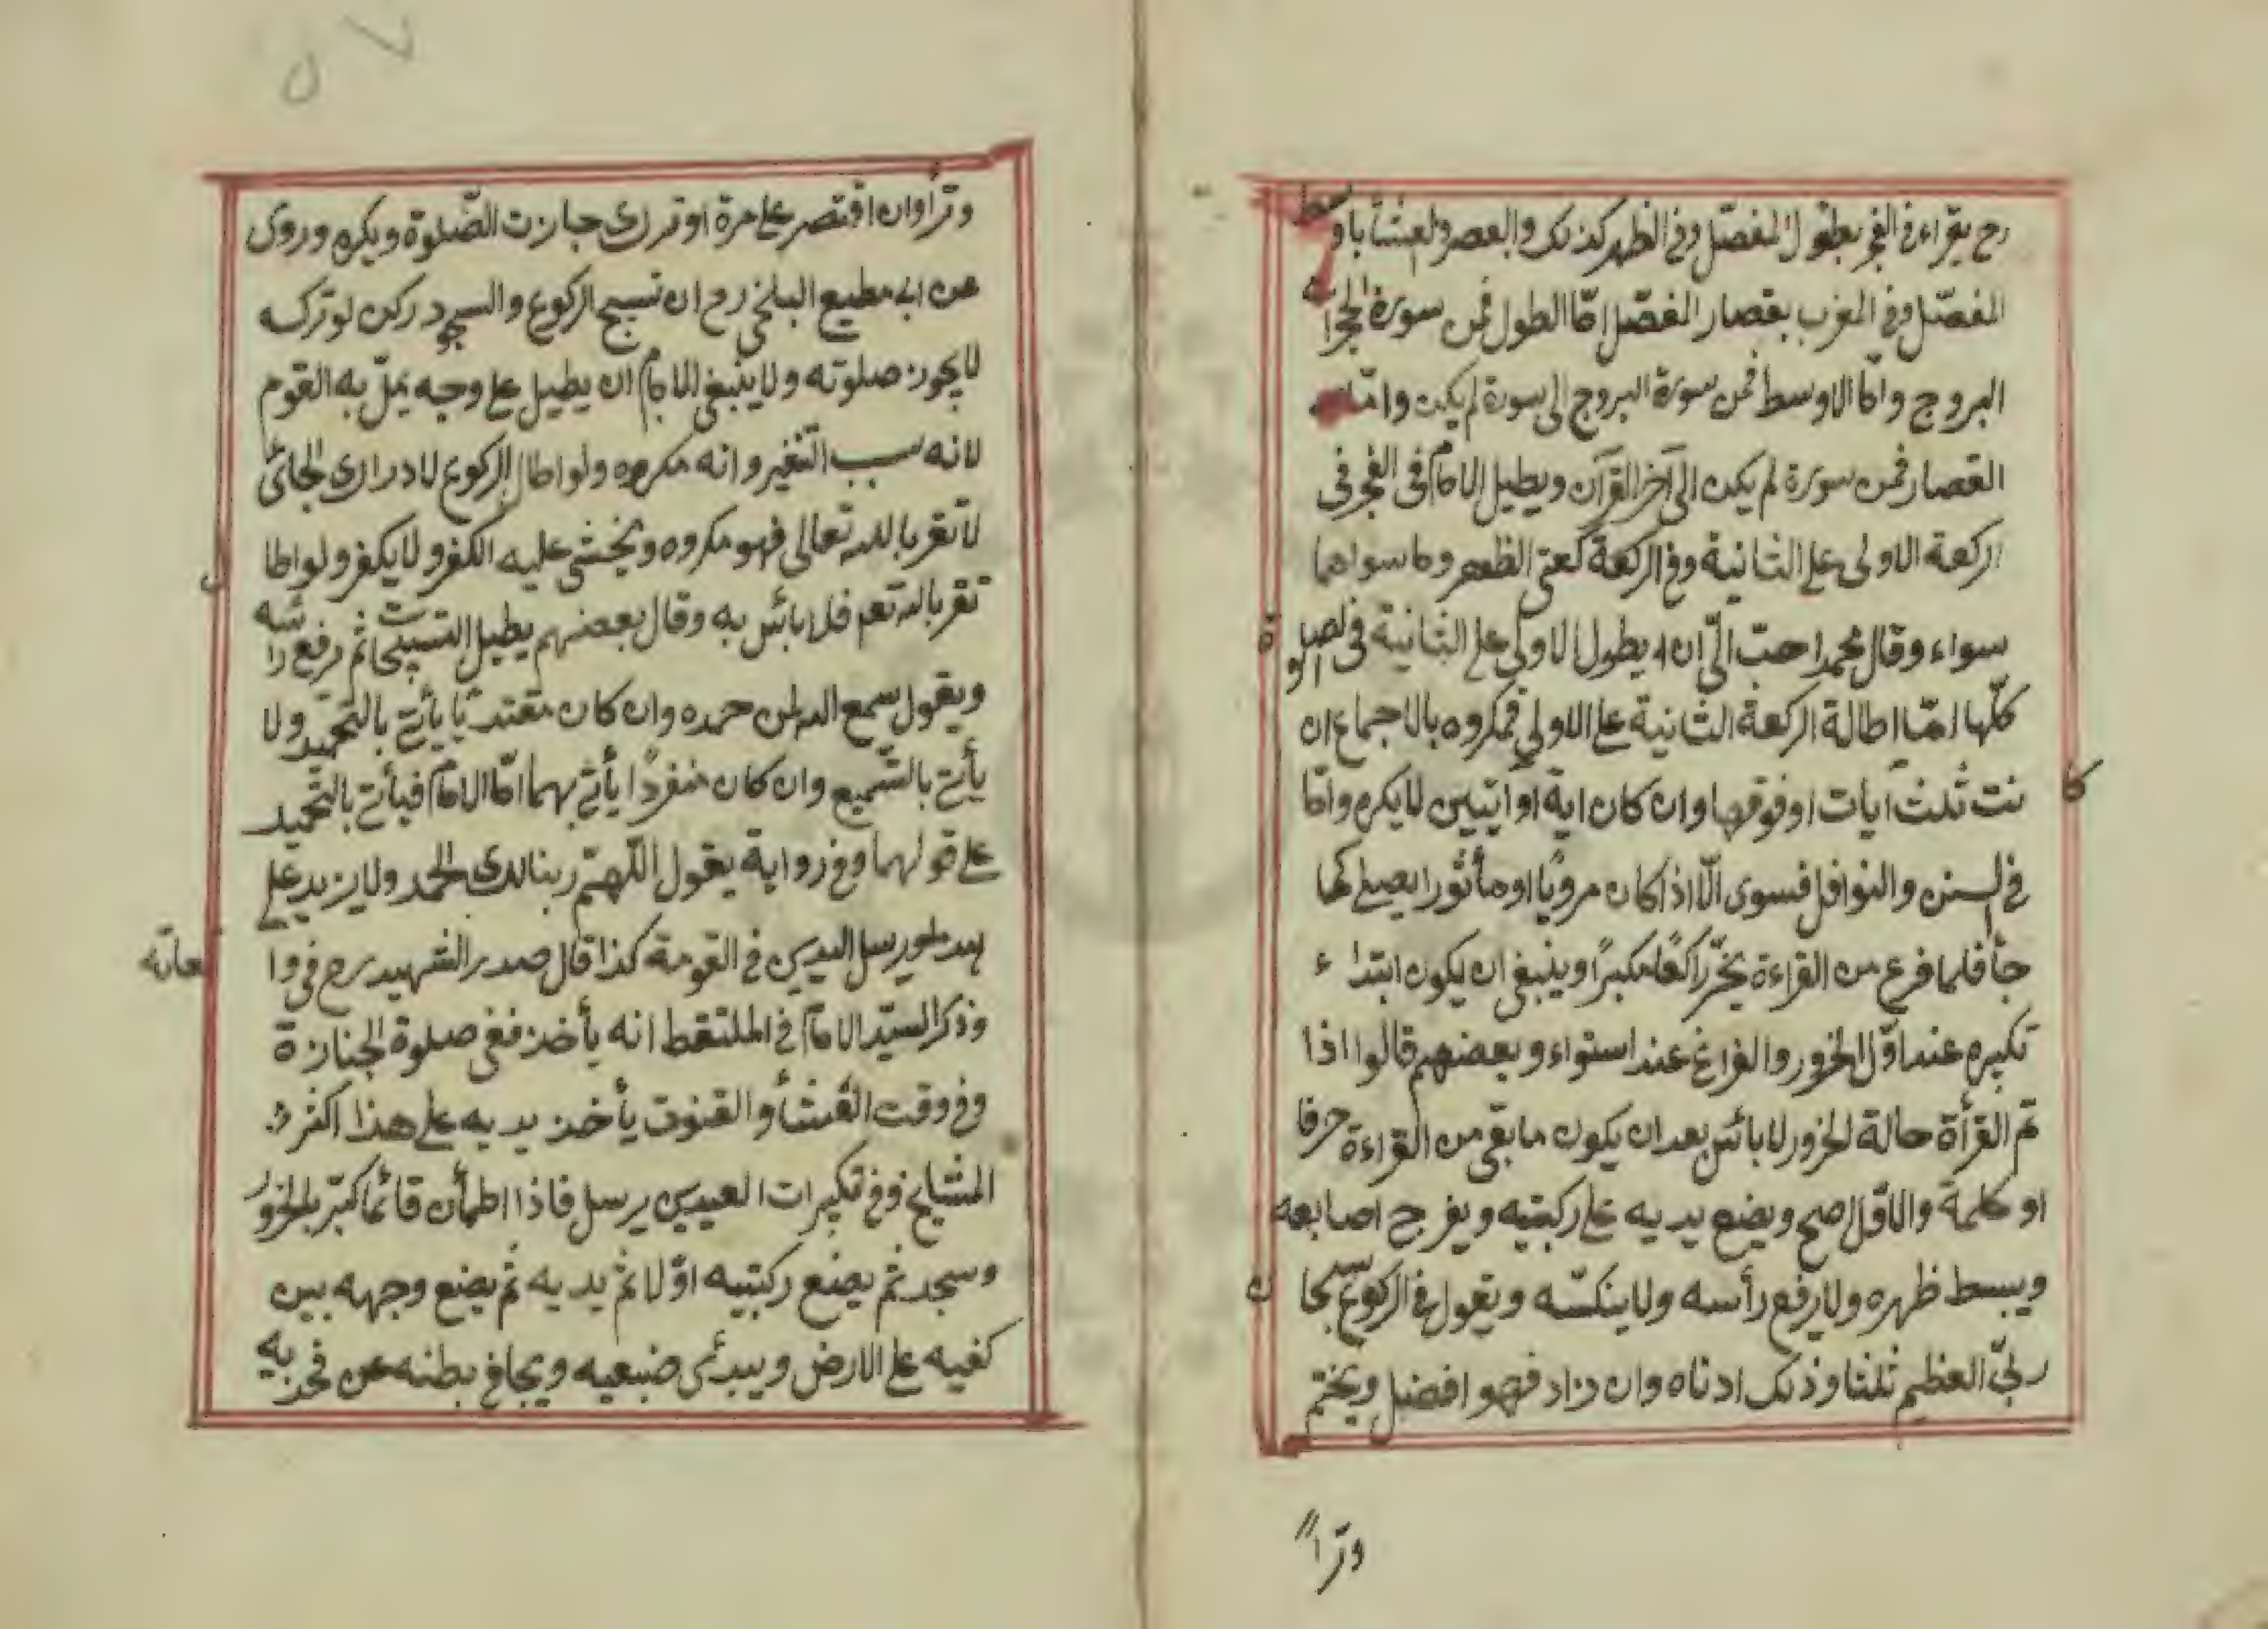 رح يقراء في الفجر بطول المفصّل وفي الظهر كذلك والعصر والعشأ باوسط
المفصّل وفي المغرب بقصار المفصّل امّا الطول فمن سورة الحجرا
البروج وامّا الاوسط فمن سورة البروج الى سورة لم يكن وامّا
القصار فمن سورة لم يكن الى آخر القرآن ويطيل الامام في الفجر في
الركعة الاولى على الثانية وفي الركعة كعتى الظهر وما سواهما
سواء وقال محمد احبّ الىّ ان يطول الاولى على الثانية في الصلوة
كلّها امّا اطالة الركعة الثانية على الاولى فمكروه بالاجماع ان كا
نت ثلث آيات او فوقها وان كان اية او آيتين لا يكره وامّا
في السنن والنوافل فسوى الّا اذا كان مرويّا او مأثورا يصلى كما
جأ فلما فرغ من القراءة يخرّ راكعًا مكبرًا وينبغى ان يكون ابتداء
تكبيره عند اوّل الخرور والفراغ عند استواء وبعضهم قالوا اذا
تم القرأة حالة الخرور لا بائس بعد ان يكون ما بقى من القراءة حرفا
او كلمة والاوّل اصح ويضع يديه على ركبتيه ويفرج اصابعه
ويبسط ظهره ولا يرفع رأسه ولا ينكسّه ويقول في الركوع سبحان
ربىّ العظيم ثلثا وذلك ادناه وان زاد فهو افضل ويختم
وترًا
٥٧
وترأ وان اقتصر على مرة او ترك جازت الصّلوة ويكره وروى
عن ابى مطيع البلخى رح ان تسبيح الركوع والسجود ركن لو تركه
لا يجوز صلوته ولا ينبغى الامام ان يطيل على وجه يملّ به القوم
لانه سبب التنفير وانه مكروه ولو اطال الركوع لادراك الجائى
لا تقربا لله تعالى فهو مكروه ويخشى عليه الكفر ولا يكفر ولو اطال
تقربا لله تعم فلا بائس به وقال بعضهم يطيل التسبيحات ثم يرفع رائسه
ويقول سمع الله لمن حمده وان كان مقتديّا يأتى بالتحميد ولا
يأتى بالتسميع وان كان منفردًا يأتى بهما امّا الامام فيأتى بالتحميد
على قولهما وفي رواية يقول اللّهمّ ربنا لك الحمد ولا يزيد على
هذا ويرسل اليدين في القومة كذا قال صدر الشهيد رح في واقعاته
وذكر السيّد الامام في الملتقط انه يأخذ ففى صلوة الجنازة
وفي وقت الثنأ والقنوت يأخذ يديه على هذا اكثر
المشايخ وفي تكبيرات العيدين يرسل فاذا اطمأن قائما كبّر بالخرور
وسجد ثم يضع ركبتيه اوّلا ثم يديه ثم يضع وجهه بين
كفيه على الارض ويبدئ ضبعيه ويجافى بطنه عن فخذيه